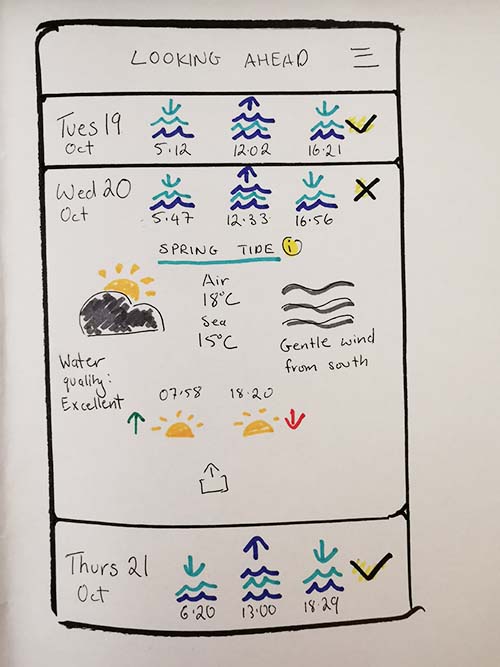 LOOKING AHEAD
Tues 19
Oct
5.12 12.02 16.21
Wed 20
Oct
5.47 12.33 16.56
SPRING TIDE i
Air
18°C
Sea
15°C
Gentle wind
from south
Water
quality:
Excellent
07.58 18.20
Thurs 21
Oct
6.20 13.00 18.29